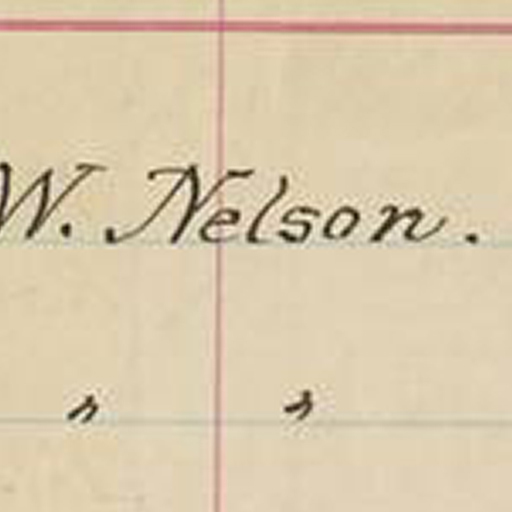 W. Nelson.
" "